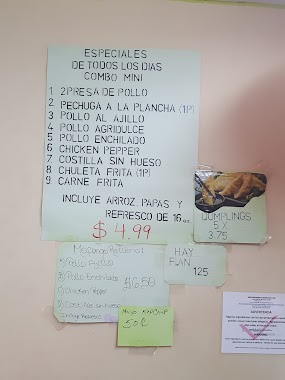 ESPECIALES
DE TODOS LOS DIAS
COMBO MINI
1 2 PRESA DE POLLO
2 PECHUGA A LA PLANCHA (1P)
3 POLLO AL AJILLO
4 POLLO AGRIDULCE
5 POLLO ENCHILADO
6 CHICKEN PEPPER
7 COSTILLA SIN HUESO
8 CHULETA FRITA (1P)
9 CARNE FRITA
INCLUYE ARROZ PAPAS Y
REFRESCO DE 16 oz.
$4.99
DUMPLINGS
5 X
3.75
HAY
FLAN
125
Pollo
Pollo Enchilado
$6.50
Chicken Pepper
Costillas sin hueso
Mayo Ketchup
50¢
ADVERTENCIA